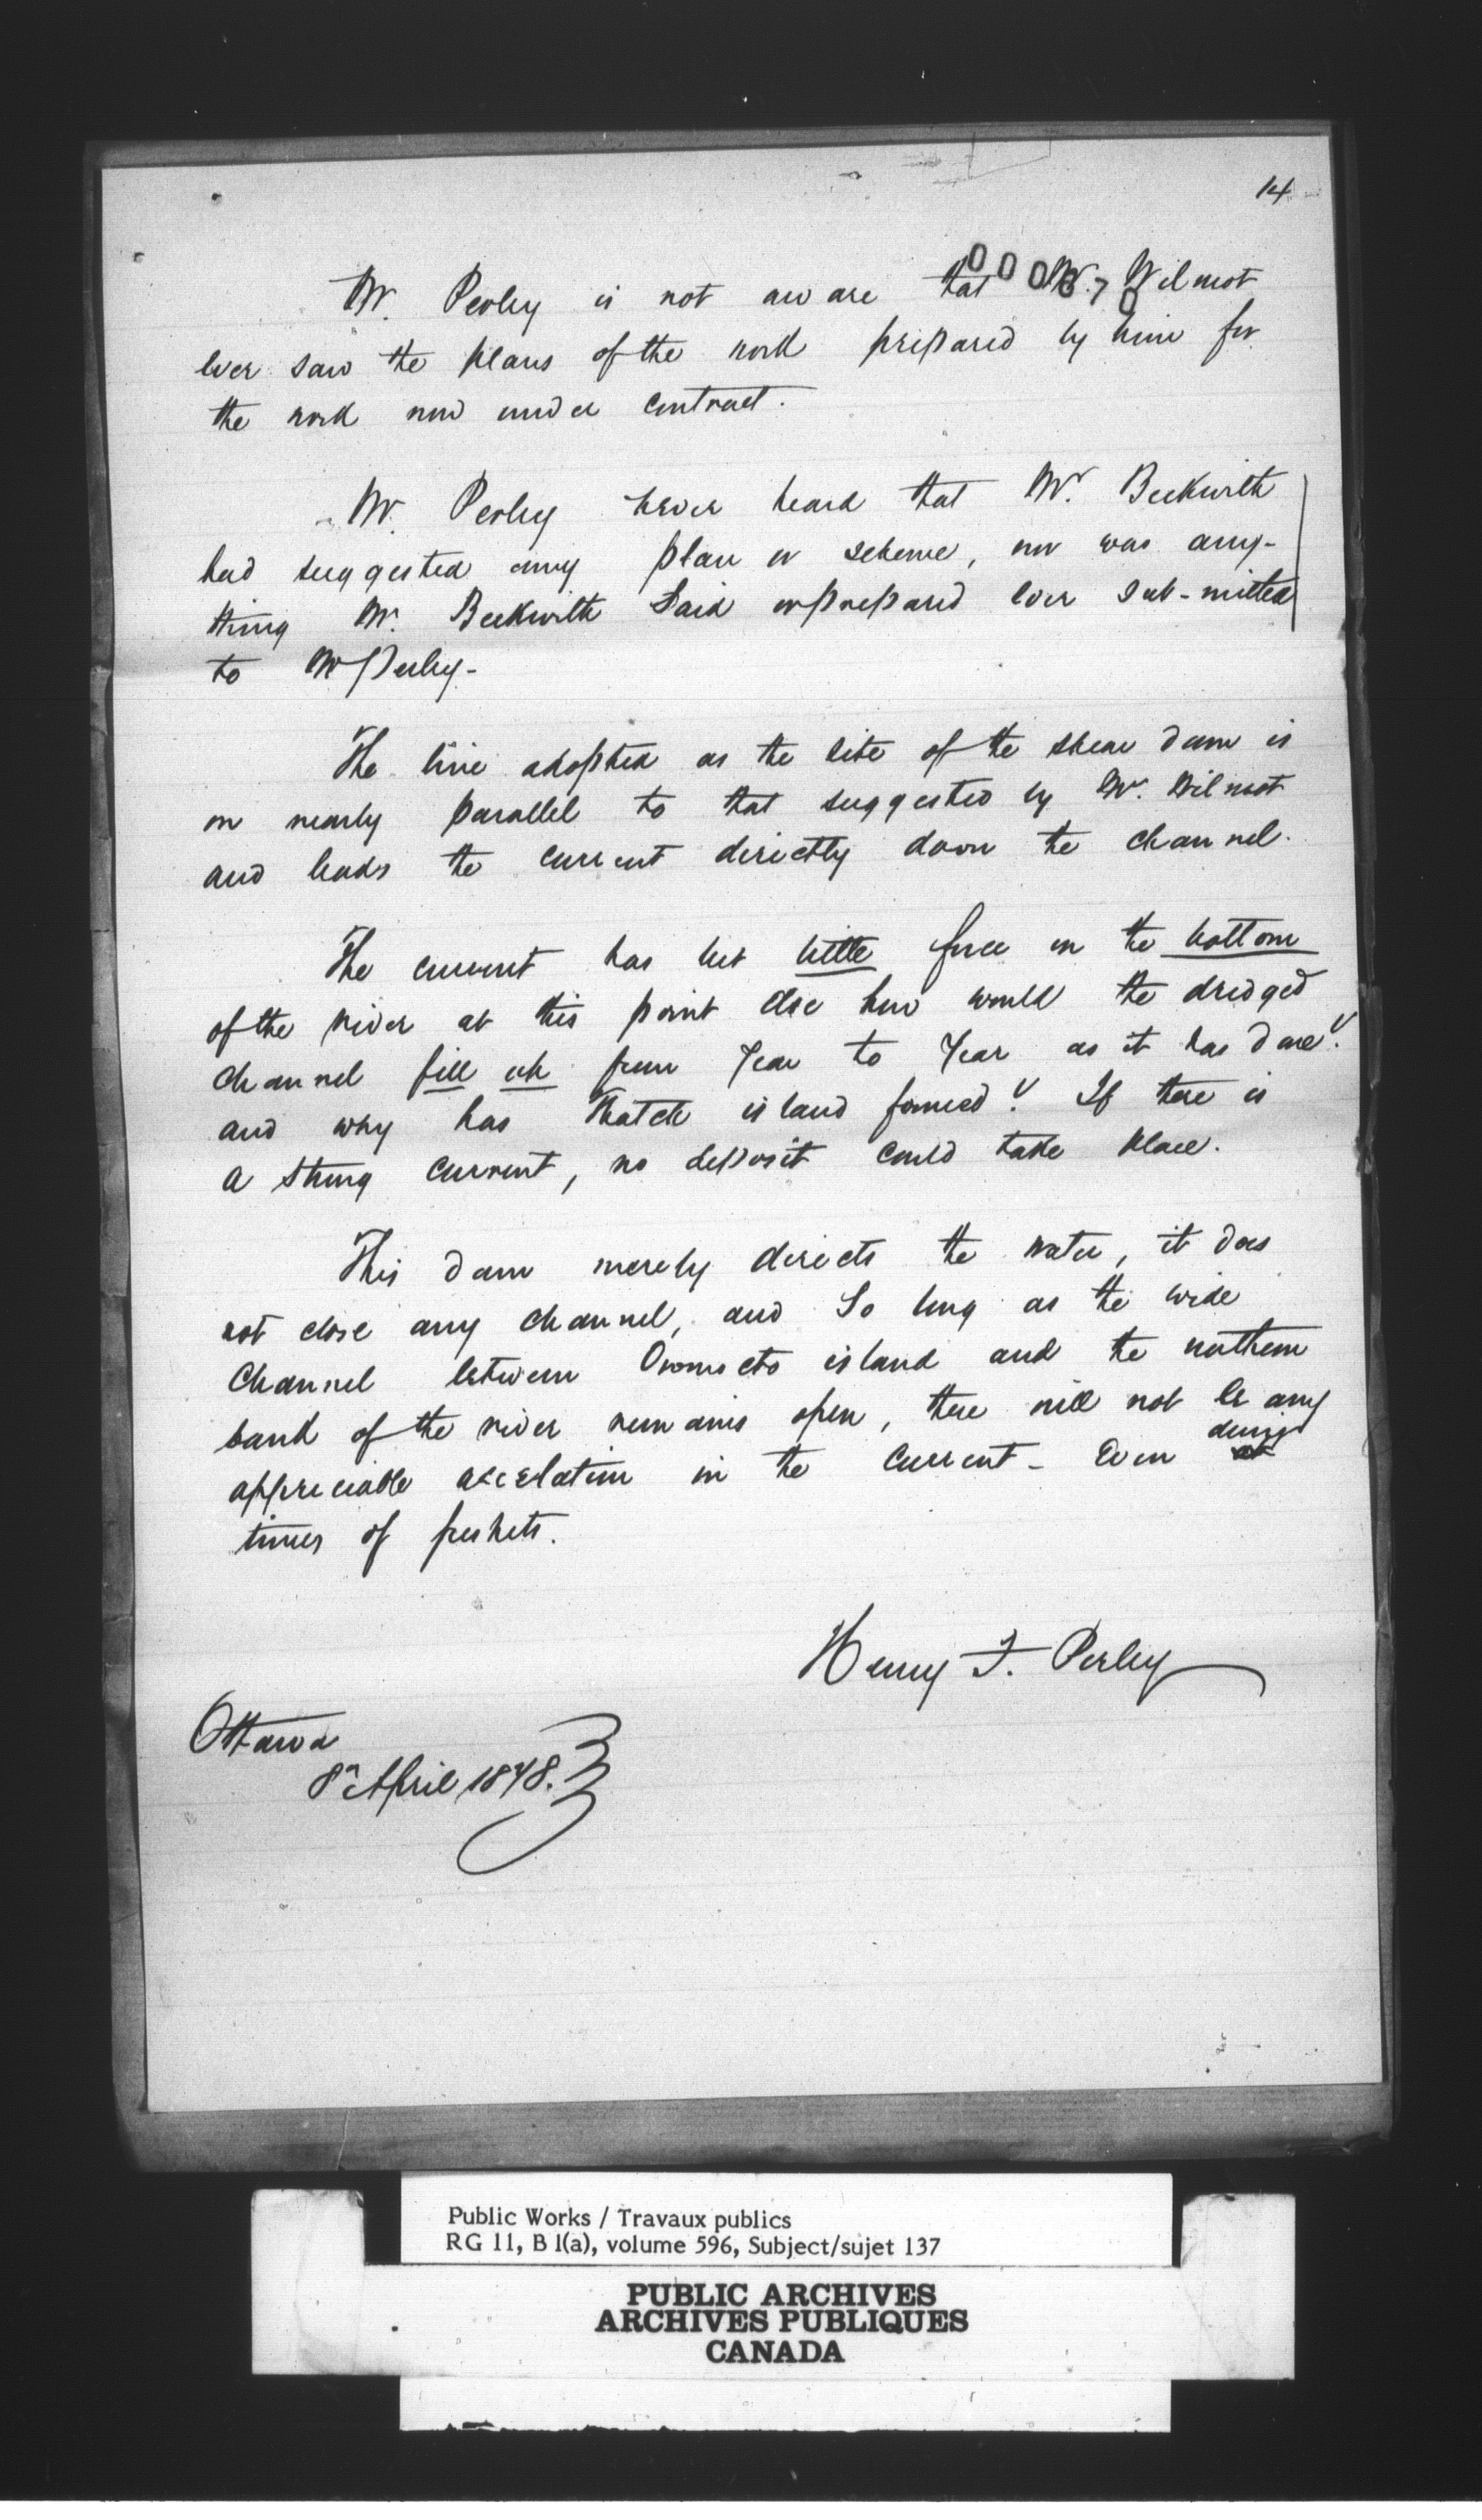 14
000670
Mr. Perley is not aware that Mr. Wilmot
ever saw the plans of the work prepared by him for
the work now under contract.
Mr. Perley never heard that Mr. Beckwith
had suggested any plan or scheme, nor was any-
thing Mr. Beckwith said or prepared ever sub-mitted
to Mr Perley-
The line adopted as the site of the shear dam is
on nearly parallel to that suggested by Mr. Wilmot
and leads the current directly down the channel.
The current has but little force on the bottom
of the river at this point else how would the dredged
channel fill up from Year to Year as it has done?
and why has Thatch island formed? If there is
a strong current, no deposit could take place.
This dam merely directs the water, it does
not close any channel, and so long as the wide
Channel between Oromocto island and the northern
bank of the river remains open, there will not be any
appreciable accelation in the current - even at during
times of freshets.
Henry F. Perley
Ottawa
8th April 1878.
Public Works / Travaux publics
RG 11, B 1(a), volume 596, Subject/sujet 137
PUBLIC ARCHIVES
ARCHIVES PUBLIQUES
CANADA